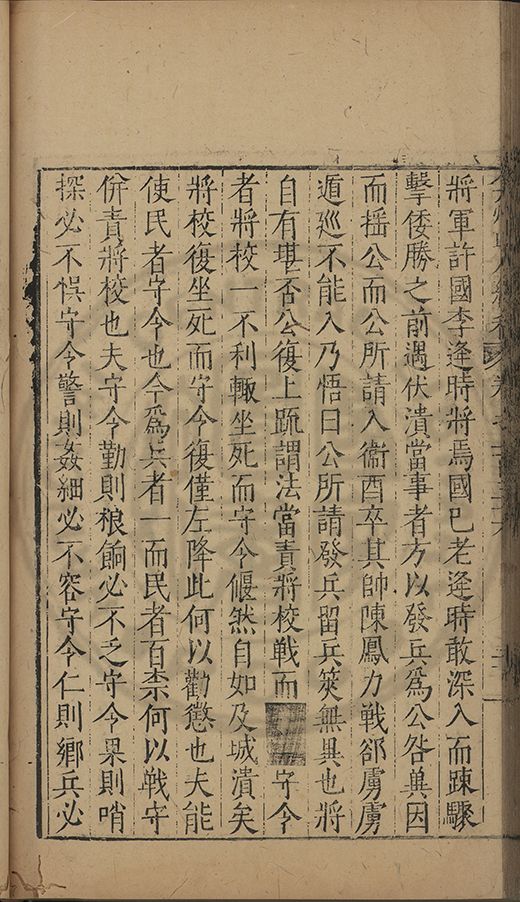 將軍許國李逢時將焉國已老逢時敢深入而踈驟
擊倭勝之前遇伏潰當事者方以發兵爲公咎兾因
而揺公而公所請入衞酉卒其帥陳鳳力戰郤虜虜
遁廵不能入乃悟曰公所請發兵留兵筴無異也將
自有堪否公復上䟽謂法當責將校戰而守令
者將校一不利輙坐死而守令偃然自如及城潰矣
將校復坐死而守令復僅左降此何以勸懲也夫能
使民者守令也今爲兵者一而民者百柰何以戰守
倂責將校也夫守令勤則粮餉必不乏守令果則哨
探必不悞守令警則姦細必不容守令仁則鄉兵必